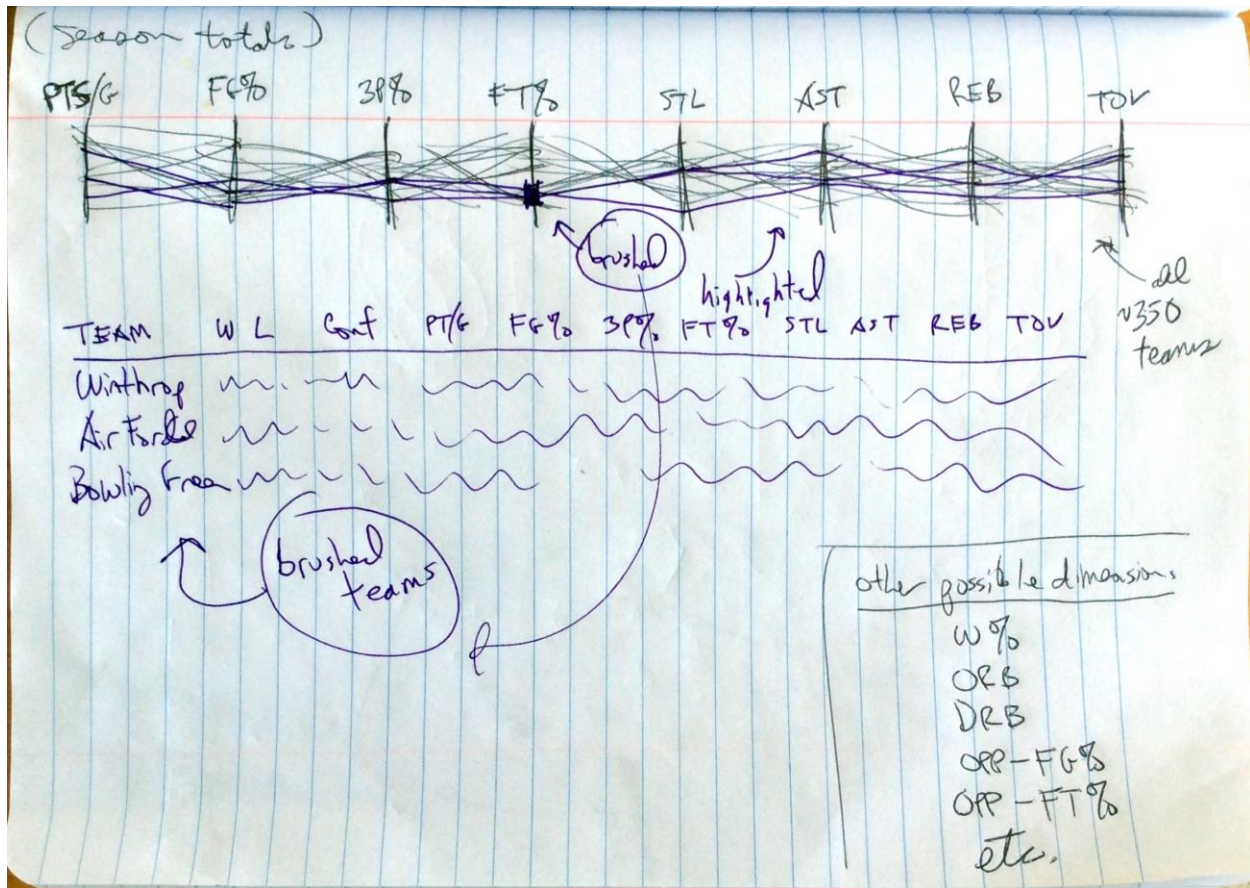 (Season totals)
PTS/G FG% 3P% FT% STL AST REB TOV
brushed
highlighted
all
~350
teams
TEAM W L Conf PT/G FG% 3P% FT% STL AST REB TOV
Winthrop
Air Force
Bowling Green
brushed
teams
other possible dimensions
W%
ORB
DRB
OPP-FG%
OPP-FT%
etc.